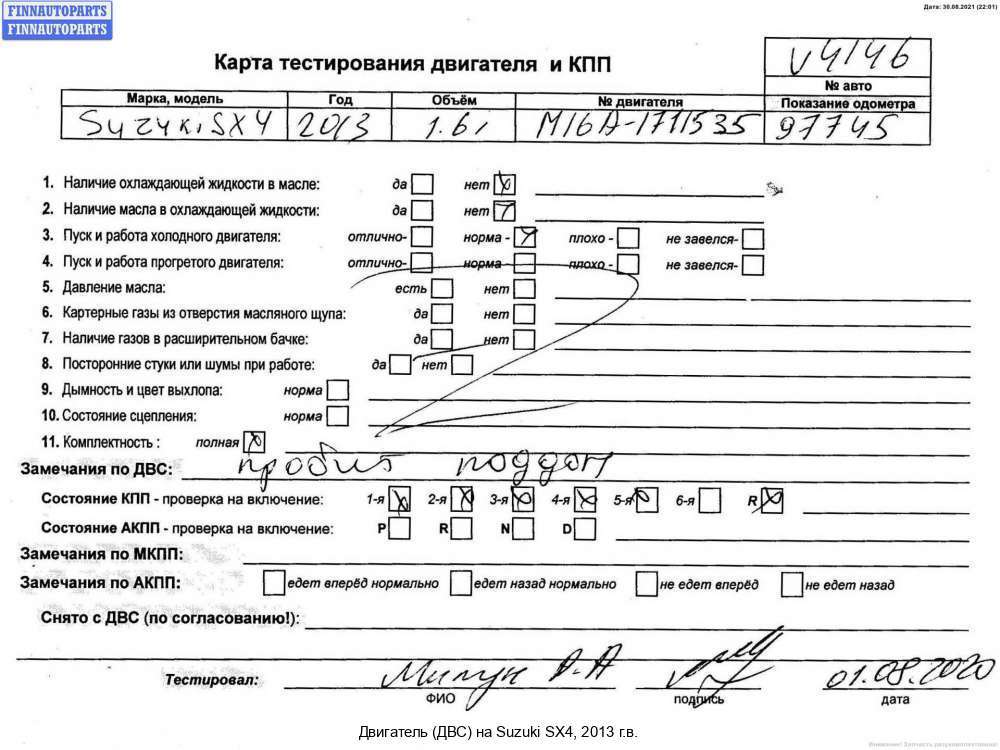 FINNAUTOPARTS
FINNAUTOPARTS
Дата: 30.08.2021 (22:01)
Карта тестирования двигателя и КПП
V4146
№ авто
Марка, модель Год Объём № двигателя Показание одометра
Suzuki SX4 2013 1.6i M16A-1711535 97745
1. Наличие охлаждающей жидкости в масле: да нет
2. Наличие масла в охлаждающей жидкости: да нет
3. Пуск и работа холодного двигателя: отлично- норма - плохо - не завелся-
4. Пуск и работа прогретого двигателя: отлично- норма - плохо - не завелся-
5. Давление масла: есть нет
6. Картерные газы из отверстия масляного щупа: да нет
7. Наличие газов в расширительном бачке: да нет
8. Посторонние стуки или шумы при работе: да нет
9. Дымность и цвет выхлопа: норма
10. Состояние сцепления: норма
11. Комплектность : полная
Замечания по ДВС: пробит поддон
Состояние КПП - проверка на включение: 1-я 2-я 3-я 4-я 5-я 6-я R
Состояние АКПП - проверка на включение: P R N D
Замечания по МКПП:
Замечания по АКПП: едет вперёд нормально едет назад нормально не едет вперёд не едет назад
Снято с ДВС (по согласованию!):
Тестировал: А.А 01.08.2020
ФИО подпись дата
Двигатель (ДВС) на Suzuki SX4, 2013 г.в.